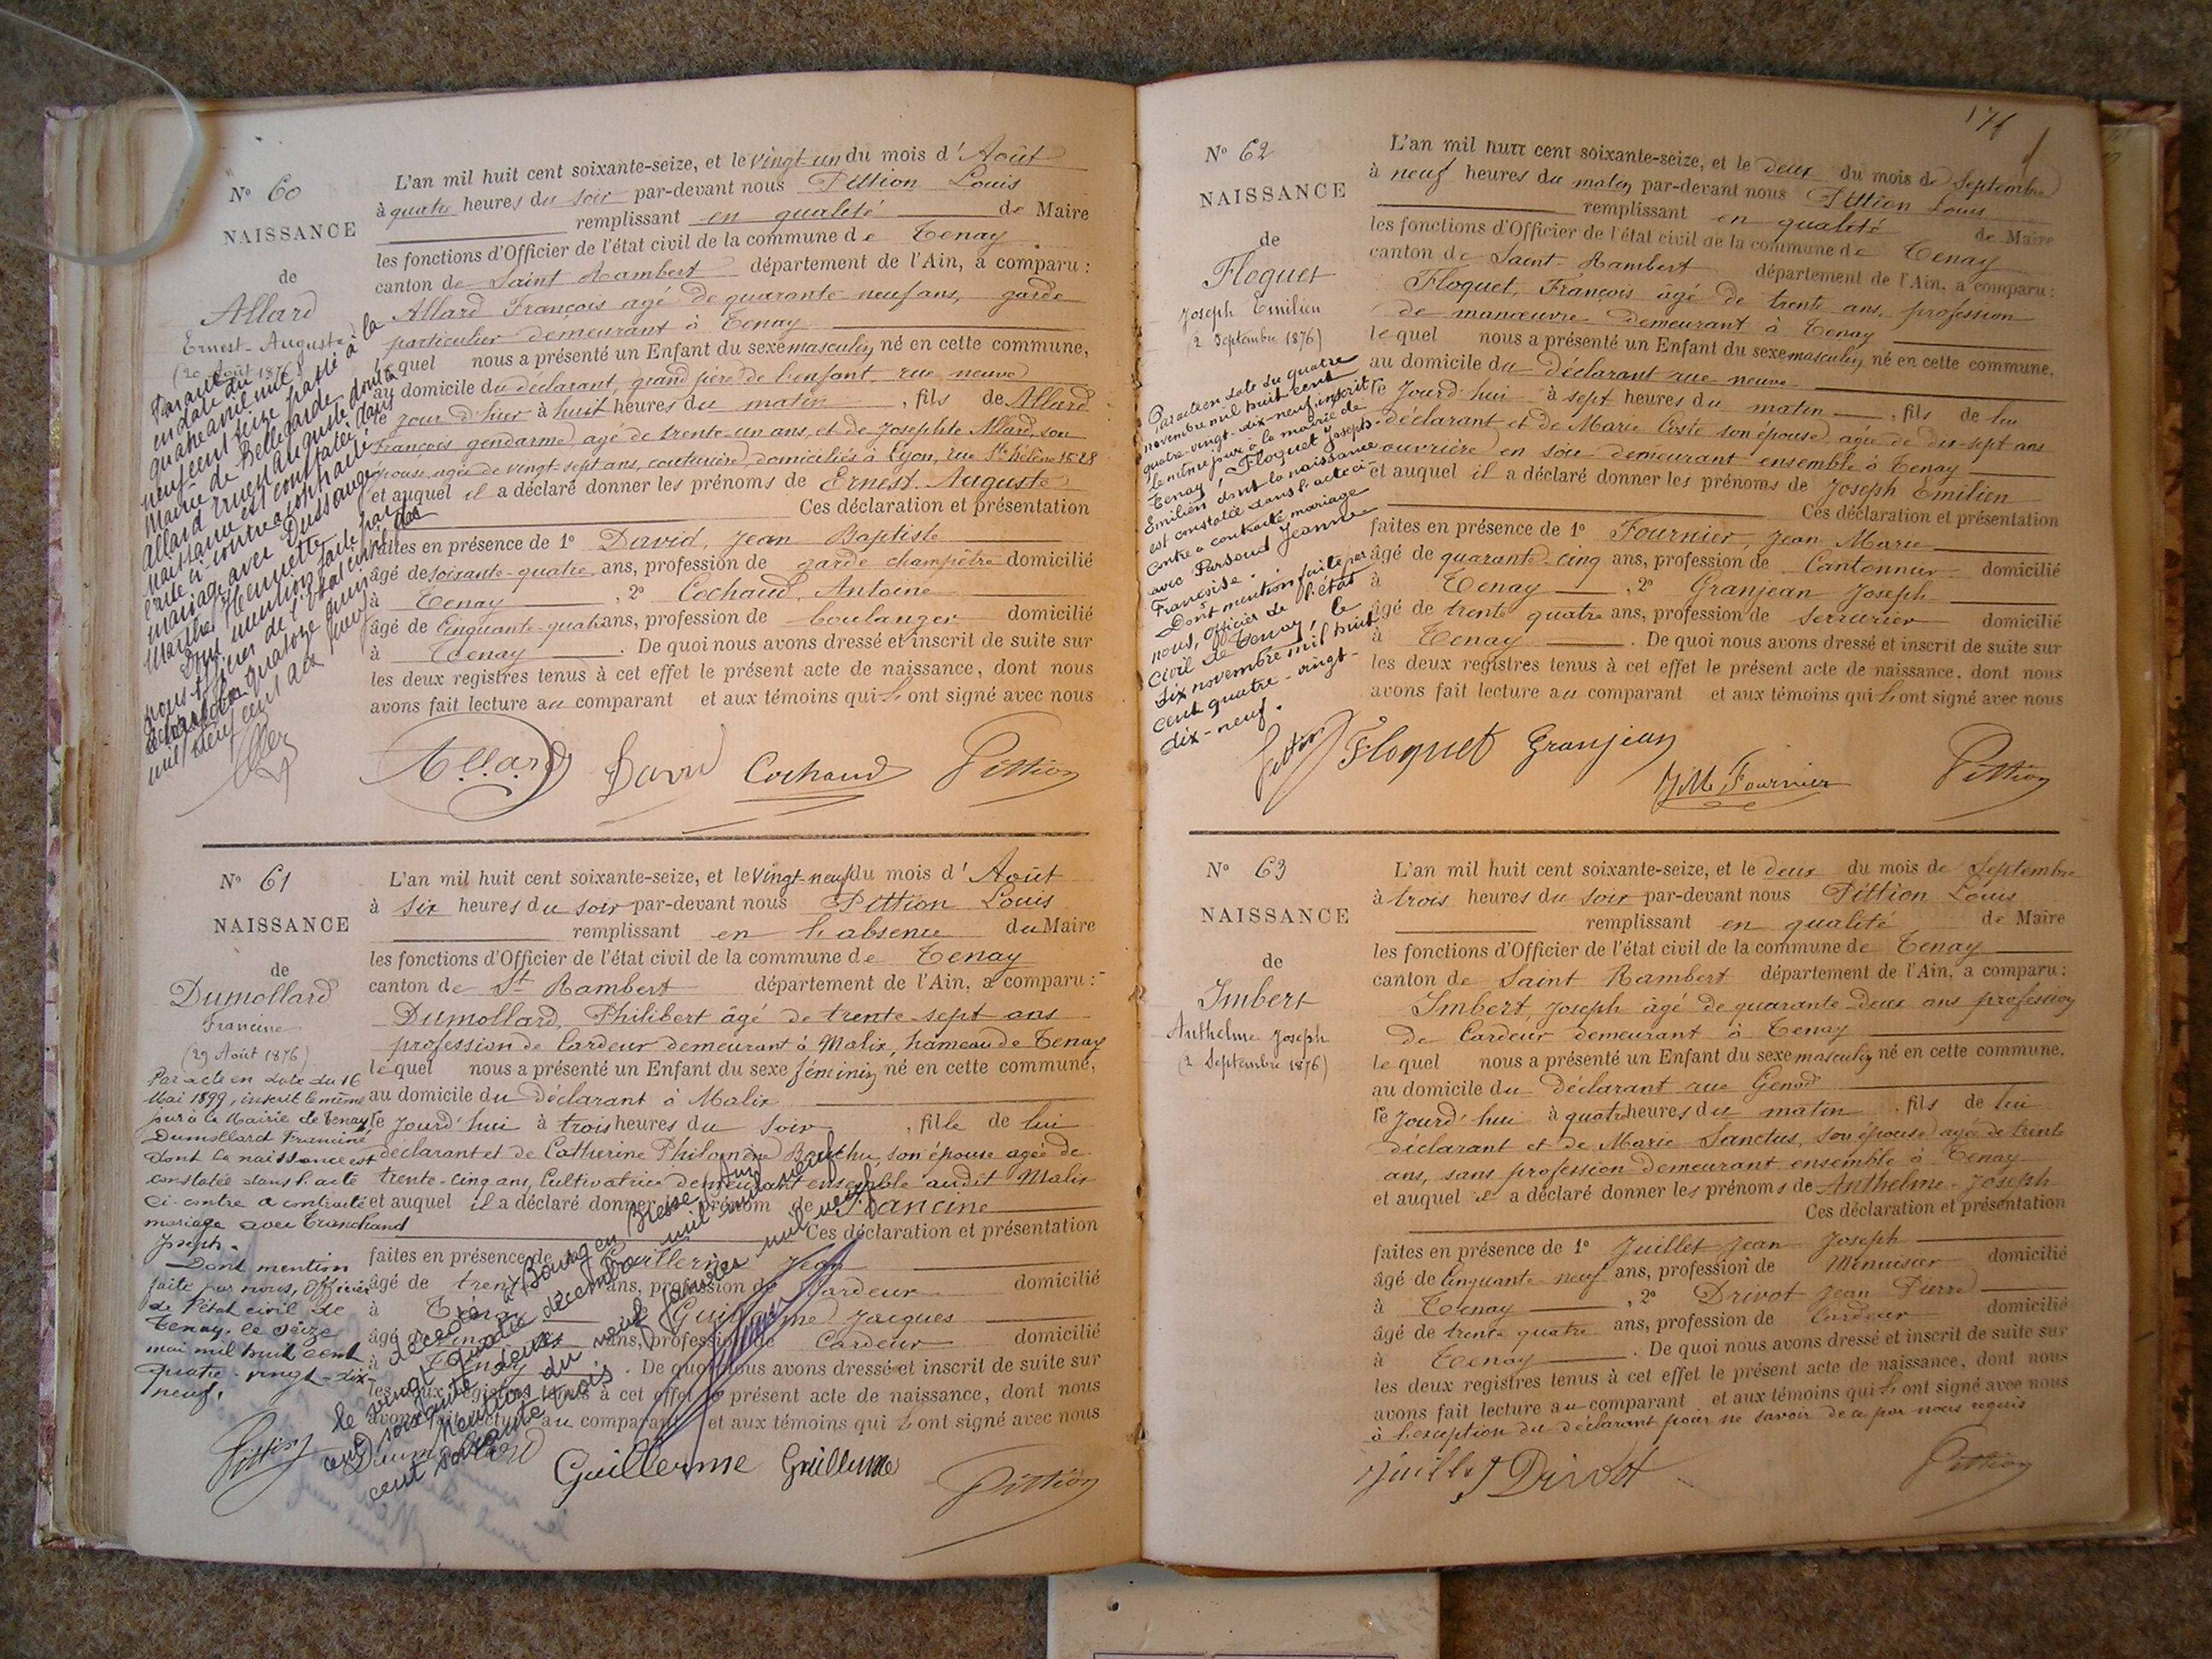 N° 60
NAISSANCE
de
Allard
Ernest-Auguste
(20 Août 1876)
Par acte
en date du
quatre
neuf cent seize passé à la
Mairie de Bellegarde
Allard Ernest Auguste dont la
naissance est constatée dans
l'acte ci-contre a contracté
mariage avec Dussauge
Henriette
Dont mention faite par
nous officier de l'état civil
quatorze
mil neuf cent
L'an mil huit cent soixante-seize, et le vingt-un du mois d'Août
à quatre heures du soir par-devant nous Pittion Louis
remplissant en qualité de Maire
les fonctions d'Officier de l'état civil de la commune de Tenay
canton de Saint Rambert département de l'Ain, a comparu :
Allard François agé de quarante neuf ans, garde
particulier demeurant à Tenay
lequel nous a présenté un Enfant du sexe masculin né en cette commune,
au domicile du déclarant, grand père de l'enfant, rue neuve
le jour d'hier à huit heures du matin, fils de Allard
François gendarme, agé de trente-un ans, et de Josephte Allard, son
épouse, agée de vingt-sept ans, couturière, domiciliés à Lyon, rue Ste hélène 28
et auquel il a déclaré donner les prénoms de Ernest-Auguste
Ces déclaration et présentation
faites en présence de 1° David, Jean Baptiste
âgé de soixante-quatre ans, profession de garde champêtre domicilié
à Tenay, 2° Cochaud, Antoine
âgé de Cinquante quatre ans, profession de boulanger domicilié
à Tenay. De quoi nous avons dressé et inscrit de suite sur
les deux registres tenus à cet effet le présent acte de naissance, dont nous
avons fait lecture au comparant et aux témoins qui l'ont signé avec nous
Allard David Cochaud Pittion
N° 61
NAISSANCE
de
Dumollard
Francine
(29 Août 1876)
Par acte en date du 16
Mai 1899, inscrit le même
jour à la Mairie de Tenay
Dumollard Francine
dont la naissance est
constatée dans l'acte
ci-contre a contracté
mariage avec Tranchand
Joseph.
Dont mention
faite par nous, Officier
de l'état civil de
Tenay, le seize
mai mil huit cent
quatre-vingt-dix-
neuf.
Pittion
L'an mil huit cent soixante-seize, et le vingt-neuf du mois d'Août
à six heures du soir par-devant nous Pittion Louis
remplissant en l'absence du Maire
les fonctions d'Officier de l'état civil de la commune de Tenay
canton de St Rambert département de l'Ain, a comparu :
Dumollard, Philibert âgé de trente-sept ans
profession de Cardeur demeurant à Malix, hameau de Tenay
lequel nous a présenté un Enfant du sexe féminin né en cette commune,
au domicile du déclarant à Malix
le jourd'hui à trois heures du soir, fille de lui
déclarant et de Catherine Philomène son épouse agée de
trente-cinq ans, Cultivatrice demeurant ensemble audit Malix
et auquel il a déclaré donner le prénom de Francine
Ces déclaration et présentation
faites en présence de Guillerme Jean
âgé de ans, profession de Cardeur domicilié
à Tenay Guillerme Jacques
âgé de ans, profession de Cardeur domicilié
à Tenay. De quoi nous avons dressé et inscrit de suite sur
les deux registres tenus à cet effet le présent acte de naissance, dont nous
avons fait lecture au comparant et aux témoins qui l'ont signé avec nous
décédée à Bourg en Bresse (Ain)
le vingt quatre décembre mil neuf
cent soixante deux
Mention du neuf janvier mil neuf
cent soixante trois
Dumollard Guillerme Guillerme Pittion
171
N° 62
NAISSANCE
de
Floquet
Joseph Emilien
(2 Septembre 1876)
Par acte en date du quatre
novembre mil huit cent
quatre-vingt-dix-neuf, inscrit
le même jour à la mairie de
Tenay, Floquet Joseph-
Emilien dont la naissance
est constatée dans l'acte ci-
contre a contracté mariage
avec Parsoud Jeanne
Françoise.
Dont mention faite par
nous, officier de l'état
civil de Tenay, le
six novembre mil huit
cent quatre-vingt-
dix-neuf.
Pittion
L'an mil huit cent soixante-seize, et le deux du mois de Septembre
à neuf heures du matin par-devant nous Pittion Louis
remplissant en qualité de Maire
les fonctions d'Officier de l'état civil de la commune de Tenay
canton de Saint-Rambert département de l'Ain, a comparu :
Floquet, François âgé de trente ans, profession
de manœuvre demeurant à Tenay
lequel nous a présenté un Enfant du sexe masculin né en cette commune,
au domicile du déclarant rue neuve
le jourd'hui à sept heures du matin, fils de lui
déclarant et de Marie Coste son épouse, agée de dix-sept ans
ouvrière en soie demeurant ensemble à Tenay
et auquel il a déclaré donner les prénoms de Joseph Emilien
Ces déclaration et présentation
faites en présence de 1° Fournier, Jean Marie
âgé de quarante-cinq ans, profession de Cantonnier domicilié
à Tenay, 2° Granjean Joseph
âgé de trente quatre ans, profession de serrurier domicilié
à Tenay. De quoi nous avons dressé et inscrit de suite sur
les deux registres tenus à cet effet le présent acte de naissance, dont nous
avons fait lecture au comparant et aux témoins qui l'ont signé avec nous
Floquet Granjean
JM Fournier Pittion
N° 63
NAISSANCE
de
Imbert
Anthelme Joseph
(2 Septembre 1876)
L'an mil huit cent soixante-seize, et le deux du mois de Septembre
à trois heures du soir par-devant nous Pittion Louis
remplissant en qualité de Maire
les fonctions d'Officier de l'état civil de la commune de Tenay
canton de Saint Rambert département de l'Ain, a comparu :
Imbert, Joseph âgé de quarante-deux ans profession
de Cardeur demeurant à Tenay
lequel nous a présenté un Enfant du sexe masculin né en cette commune,
au domicile du déclarant rue Genod
le jourd'hui à quatre heures du matin, fils de lui
déclarant et de Marie Sanctus, son épouse agée de trente
ans, sans profession demeurant ensemble à Tenay
et auquel il a déclaré donner les prénoms de Anthelme-Joseph
Ces déclaration et présentation
faites en présence de 1° Juillet Jean Joseph
âgé de Cinquante-neuf ans, profession de Menuisier domicilié
à Tenay, 2° Drivot Jean Pierre
âgé de trente quatre ans, profession de Cardeur domicilié
à Tenay. De quoi nous avons dressé et inscrit de suite sur
les deux registres tenus à cet effet le présent acte de naissance, dont nous
avons fait lecture au comparant et aux témoins qui l'ont signé avec nous
à l'exception du déclarant pour ne savoir de ce par nous requis
Juillet Drivot Pittion